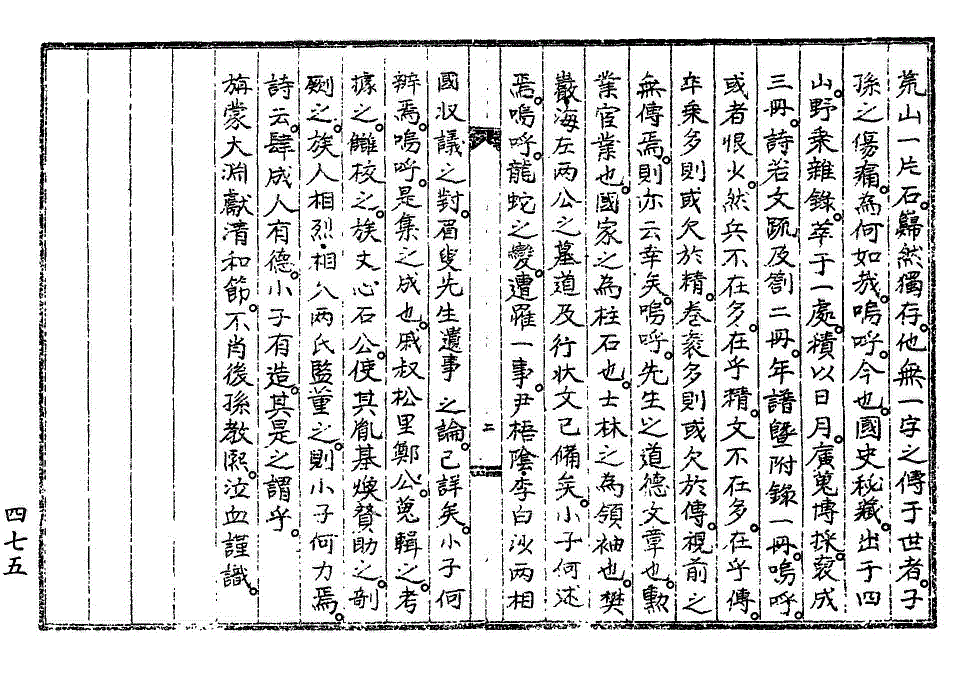 荒山一片石。巋然獨存。他無一字之傳于世者。子
孫之傷痛。為何如哉。嗚呼。今也。國史秘藏。出于四
山。野乘雜錄。萃于一處。積以日月。廣蒐博採。裒成
三冊。詩若文疏及箚二冊。年譜曁附錄一冊。嗚呼。
或者恨少。然兵不在多。在乎精。文不在多。在乎傳。
卒乘多則或欠於精。卷袠多則或欠於傳。視前之
無傳焉。則亦云幸矣。嗚呼。先生之道德文章也。勳
業官業也。國家之為柱石也。士林之為領袖也。樊
巖·海左兩公之墓道及行狀文已備矣。小子何述
焉。嗚呼。龍蛇之變。遭罹一事。尹梧陰·李白沙兩相
二
國収議之對。眉叟先生遺事之論。已詳矣。小子何
辨焉。嗚呼。是集之成也。戚叔松里鄭公。蒐輯之。考
據之。讎校之。族丈心石公。使其胤基煥贊助之。剞
劂之。族人相烈·相久兩氏監董之。則小子何力焉。
詩云。肆成人有德。小子有造。其是之謂乎。
旃蒙大淵獻清和節。不肖後孫教熙。泣血謹識。
四七五